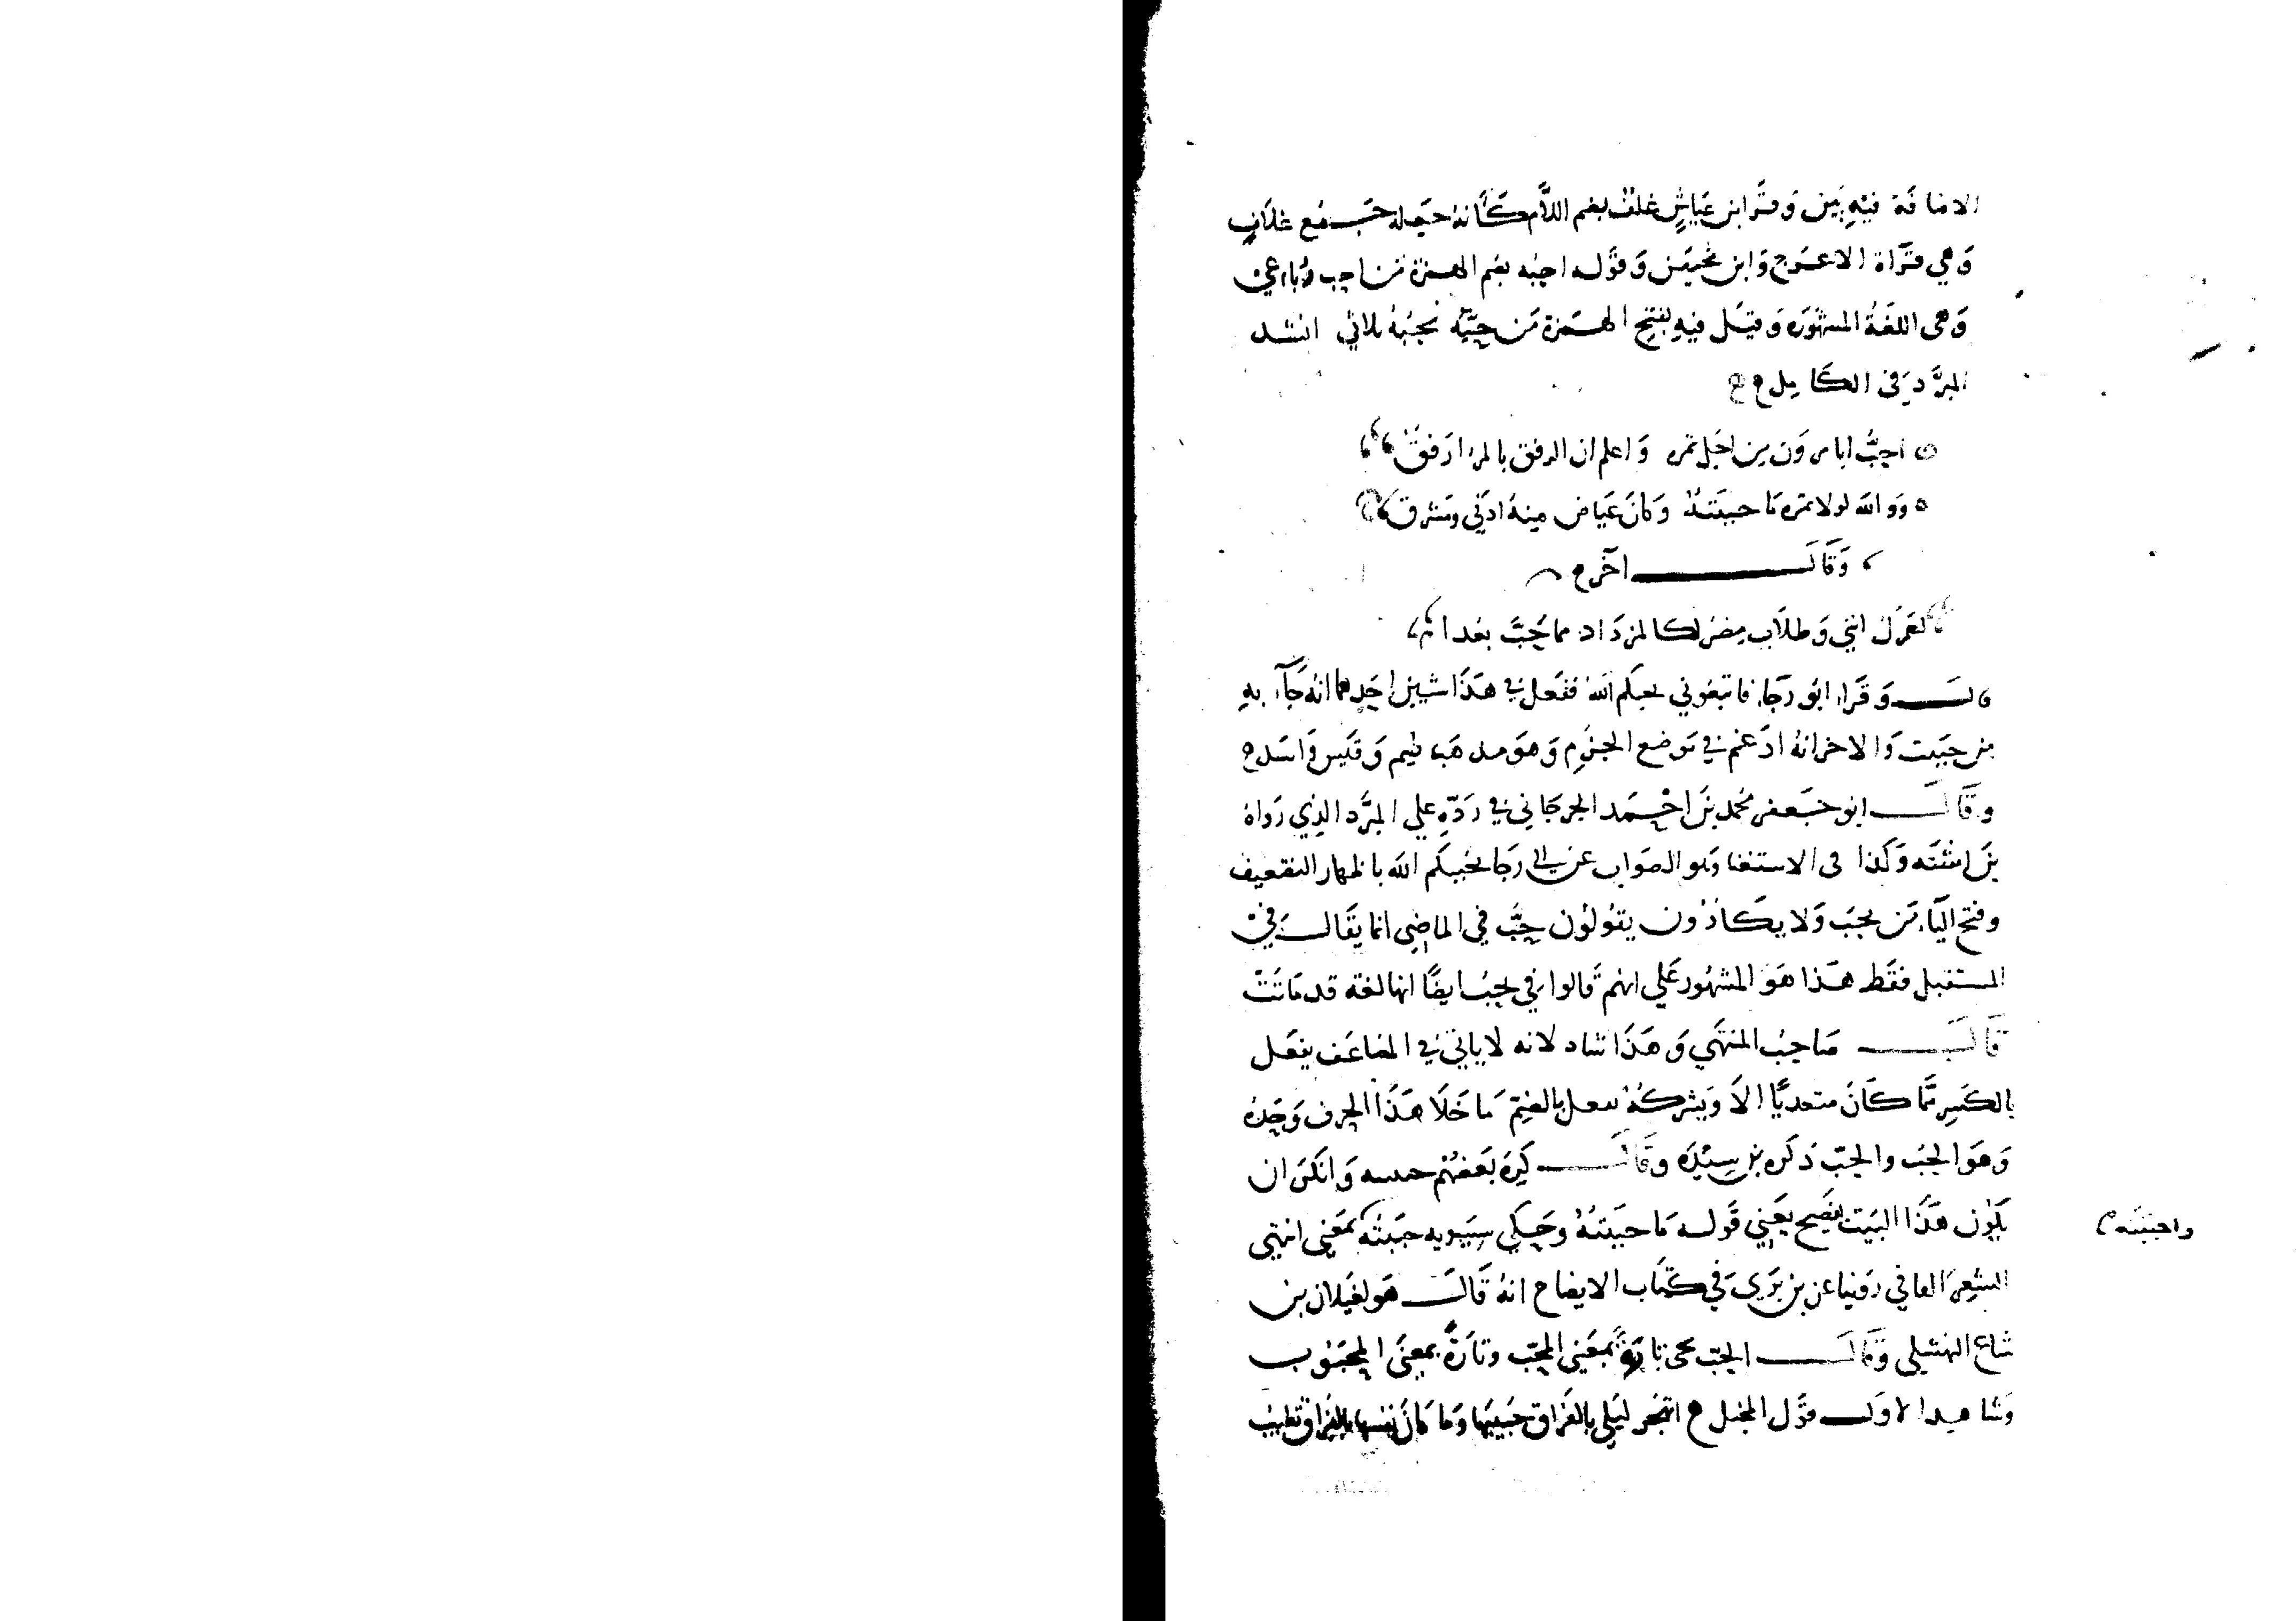 الاضافة فيه بَين وقرَّا ابن عَياشٍ غلف بضم اللَّام كَأنهُ حَجله جَمع غلَافٍ
وَهي قرَآة الاعرَج وَابن مُحيَصن وَقوَله احِبُه بضم الهمزة مَن احِب رُباعي
وَهى اللغَةُ المشهُوَره وَقيَل فيهِ بفتح الهَمزة مَن حَبَّه يَحِبُهُ ثلاثي انشد
المبرَّد يَفى الكَامِل
احِبُّ ابا مروَن مِن اجَل تمره وَاعلم ان الرفق بالمرء ارَفقَ
ووَالله لولا تمره مَا حبَبَتهُ وَكانَ عَياض مِنهُ ادَني ومَشرق
وَقَالَ اخَر
لعَمَرُك انني وَطلَاب مِصَرلكالمزدَاد مما حُبَّ بعُدا
قالَ وَقَرا ابوُ رَجَاء فاتبعُوني يحبكم اللهُ ففعَل في هَذَا شيئين احَدهما انهُ جَآء بهِ
مِن حبَبَت وَالاخر انهُ ادَغم في مَوضع الجزَم وَهوَ مذهَب تميم وَقَيس وَاسَد
وقَالَ ابو جَعفر محُمد بنَ احْمَد الجرجَاني في رَدّهِ علي المبرَّد الذِي رَوَاهُ
بنَ اشتَه وَكذا فى الاستغنا وَهو الصَواب عن ابي رَجَا يحَببكم الله باظهار التضعيف
وفتح اليَاء مَن يحِبَ وَلا يكَادُون يقوُلوُن حَبَّ في الماضِى انما يقَالَ في
المستقبل فقَط هَذا هوَ المشهُور عَلي انهم قَالوا في يَحِبُ ايضًا انها لغة قد مَاتَتْ
قَالَ صَاحِبُ المنتهَي وَهَذَا شاذ لانه لا ياتيَ في المضاعَف يفعَل
بالكَسِر مَّما كَانَ متعديًا الَا وَيَشركهُ يفعل بالضمّ مَا خَلَا هَذَا الحرف وَحَدهُ
وَهوَ الحِبُ والحبّ ذكَره بن سِيَدَه وقَالَ كَرِهَ بَعضهُم حببته وَانكَرَ ان
يَكوُن هَذَا البَيت يفَصح يعَني قَوله مَا حبَبَتهُ وحَكي سَيبَويه حبَبتُه بمَعَني انتهي
واحبَبتَه
الشعِر الثاني رَوَينا عن بن بَرَي في كتَاب الايضاح انهُ قَالَ هَو لغَيلان بن
شجاع النهشلي وقَالَ الحِبّ يجى تارةً بمعَني المحِبّ وتارَةً بمعنَي المحبُوب
وَشاهد الاوَل قوَل المخبل اتهجَر ليَلي بالفَرَاق حَبيَبهَا وَمَا كانَ نفسها بالفراق تطيب